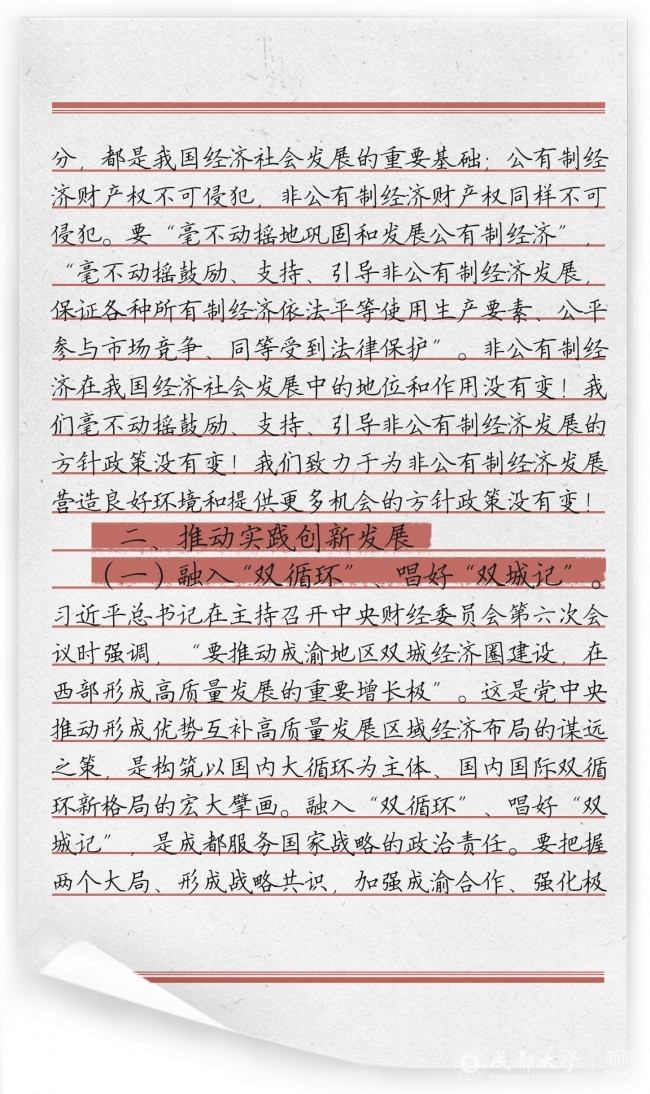 分，都是我国经济社会发展的重要基础；公有制经
济财产权不可侵犯，非公有制经济财产权同样不可
侵犯。要“毫不动摇地巩固和发展公有制经济”，
“毫不动摇鼓励、支持、引导非公有制经济发展，
保证各种所有制经济依法平等使用生产要素、公平
参与市场竞争、同等受到法律保护”。非公有制经
济在我国经济社会发展中的地位和作用没有变！我
们毫不动摇鼓励、支持、引导非公有制经济发展的
方针政策没有变！我们致力于为非公有制经济发展
营造良好环境和提供更多机会的方针政策没有变！
二、推动实践创新发展
（一）融入“双循环”、唱好“双城记”。
习近平总书记在主持召开中央财经委员会第六次会
议时强调，“要推动成渝地区双城经济圈建设，在
西部形成高质量发展的重要增长极”。这是党中央
推动形成优势互补高质量发展区域经济布局的谋远
之策，是构筑以国内大循环为主体、国内国际双循
环新格局的宏大擘画。融入“双循环”、唱好“双
城记”，是成都服务国家战略的政治责任。要把握
两个大局、形成战略共识，加强成渝合作、强化极
成都大学 新闻